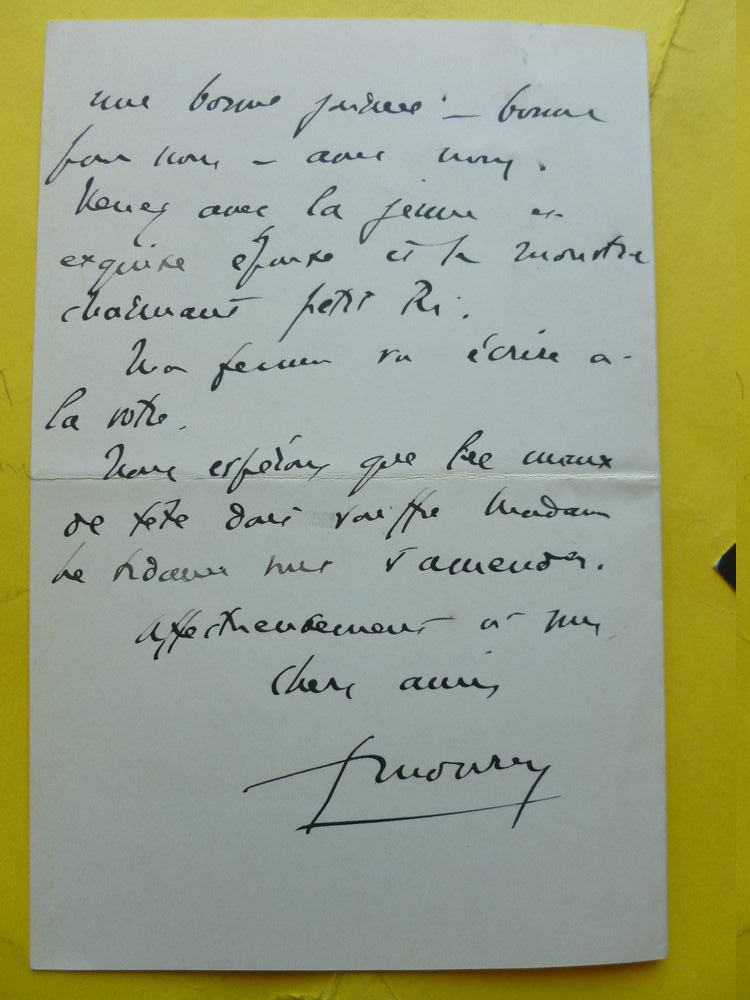 une bonne journée — bonne
pour nous — avec nous.
Venez avec la jeune et
exquise épouse et le monstre
charmant petit Ri.
Ma femme va écrire à
la votre.
Nous espérons que les maux
de tête dont souffre Madame
vont s'amender.
Affectueusement à mes
chers amis